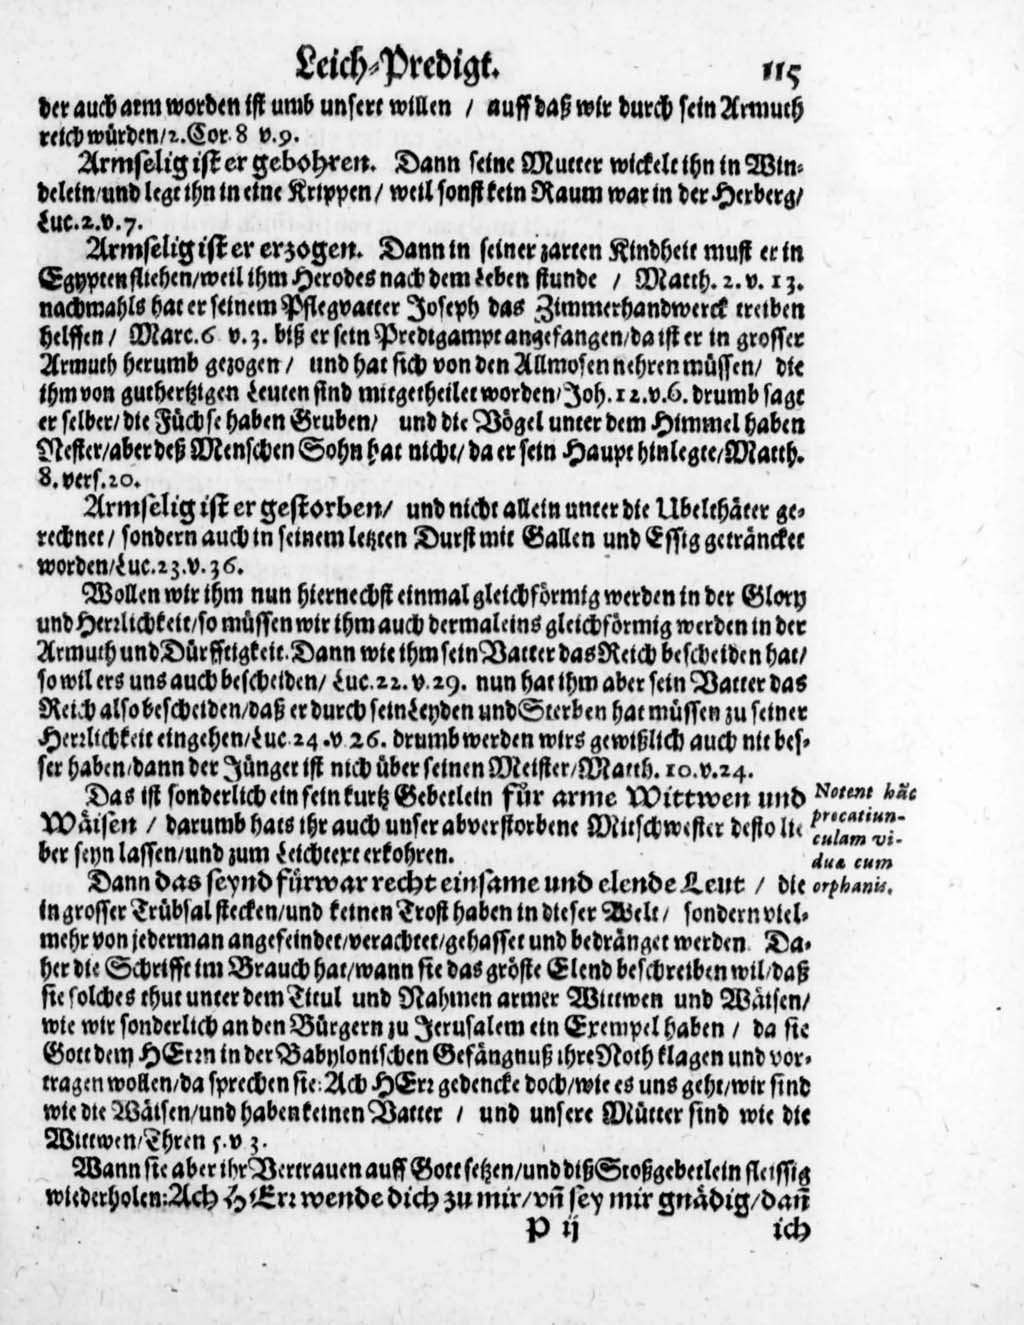 Leich-Predigt. 115
der auch arm worden ist umb unsert willen / auff daß wir durch sein Armuth
reich würden/2. Cor. 8 v. 9.
Armselig ist er gebohren. Dann seine Mutter wickelt ihn in Win-
delein/und legt ihn in eine Krippen/ weil sonst kein Raum war in der Herberg/
Luc. 2. v. 7.
Armselig ist er erzogen. Dann in seiner zarten Kindheit must er in
Egypten fliehen/weil ihm Herodes nach dem Leben stunde / Matth. 2. v. 13.
nachmahls hat er seinem Pflegvatter Joseph das Zimmerhandwerck treiben
helffen / Marc. 6 v. 3. biß er sein Predigampt angefangen/da ist er in grosser
Armuth herumb gezogen / und hat sich von den Allmosen nehren müssen/ die
ihm von guthertzigen Leuten sind mitgetheilet worden/Joh. 12. v. 6. drumb sagt
er selber/die Füchse haben Gruben/ und die Vögel unter dem Himmel haben
Nester/aber deß Menschen Sohn hat nicht/da er sein Haupt hinlegte/Matth.
8. vers. 20.
Armselig ist er gestorben/ und nicht allein unter die Ubelthäter ge-
rechnet / sondern auch in seinem letzten Durst mit Gallen und Essig geträncket
worden/Luc. 23. v. 36.
Wollen wir ihm nun hiernechst einmal gleichförmig werden in der Glory
und Herrlichkeit/so müssen wir ihm auch dermaleins gleichförmig werden in der
Armuth und Dürfftigkeit. Dann wie ihm sein Vatter das Reich bescheiden hat/
so wil ers uns auch bescheiden/ Luc. 22. v. 29. nun hat ihm aber sein Vatter das
Reich also bescheiden/daß er durch sein Leyden und Sterben hat müssen zu seiner
Herrlichkeit eingehen/Luc. 24. v. 26. drumb werden wirs gewißlich auch nit bes-
ser haben/dann der Jünger ist nich über seinen Meister/Matth. 10. v. 24.
Das ist sonderlich ein fein kurtz Gebetlein für arme Wittwen und
Wäisen / darumb hats ihr auch unser abverstorbene Mitschwester desto lie
ber seyn lassen/und zum Leichtext erkohren.
Notent hāc
precatiun-
culam vi-
duæ cum
orphanis.
Dann das seynd fürwar recht einsame und elende Leut / die
in grosser Trübsal stecken/und keinen Trost haben in dieser Welt / sondern viel-
mehr von jederman angefeindet/verachtet/gehasset und bedränget werden. Da-
her die Schrifft im Brauch hat/wann sie das gröste Elend beschreiben wil/daß
sie solches thut unter dem Titul und Nahmen armer Wittwen und Wäisen/
wie wir sonderlich an den Bürgern zu Jerusalem ein Exempel haben / da sie
Gott dem HErrn in der Babylonischen Gefängnuß ihre Noth klagen und vor-
tragen wollen/da sprechen sie: Ach HErr gedencke doch/wie es uns geht/wir sind
wie die Wäisen/und haben keinen Vatter / und unsere Mütter sind wie die
Wittwen/Thren 5. v 3.
Wann sie aber ihr Vertrauen auff Gott setzen/und diß Stoßgebetlein fleissig
wiederholen: Ach HErr wende dich zu mir/vñ sey mir gnädig/dañ
P ij ich